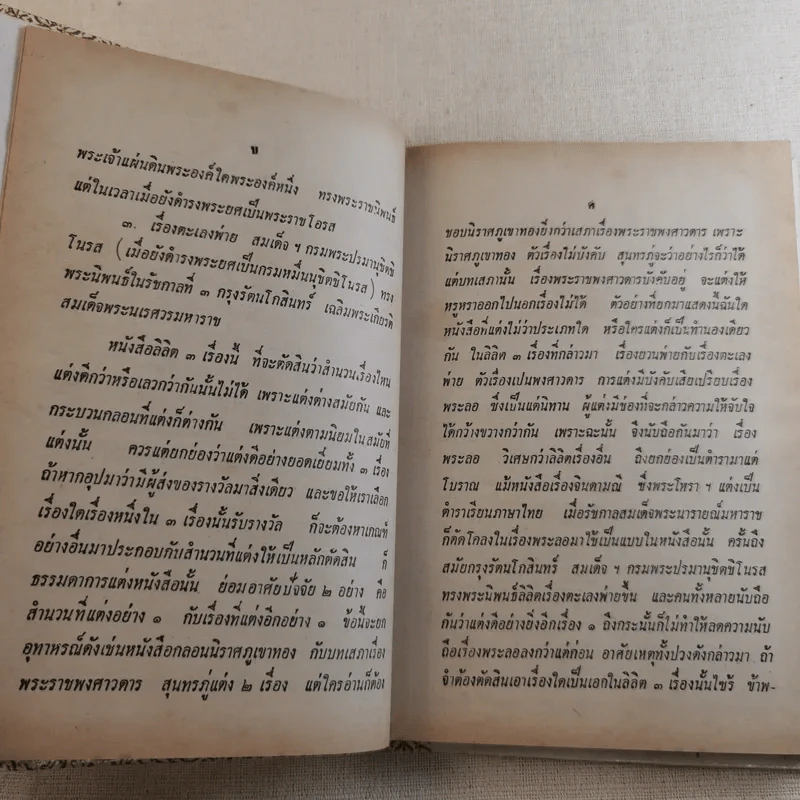 ข
พระเจ้าแผ่นดินพระองค์ใดพระองค์หนึ่ง ทรงพระราชนิพนธ์
แต่ในเวลาเมื่อยังดำรงพระยศเป็นพระราชโอรส
๓. เรื่องตะเลงพ่าย สมเด็จ ฯ กรมพระปรมานุชิตชิ
โนรส (เมื่อยังดำรงพระยศเป็นกรมหมื่นนุชิตชิโนรส) ทรง
พระนิพนธ์ในรัชกาลที่ ๓ กรุงรัตนโกสินทร์ เฉลิมพระเกียรติ
สมเด็จพระนเรศวรมหาราช
หนังสือลิลิต ๓ เรื่องนี้ ที่จะตัดสินว่าสำนวนเรื่องไหน
แต่งดีกว่าหรือเลวกว่ากันนั้นไม่ได้ เพราะแต่งต่างสมัยกัน และ
กระบวนกลอนที่แต่งก็ต่างกัน เพราะแต่งตามนิยมในสมัยที่
แต่งนั้น ควรแต่ยกย่องว่าแต่งดีอย่างยอดเยี่ยมทั้ง ๓ เรื่อง
ถ้าหากอุปมาว่ามีผู้ส่งของรางวัลมาสิ่งเดียว และขอให้เราเลือก
เรื่องใดเรื่องหนึ่งใน ๓ เรื่องนั้นรับรางวัล ก็จะต้องหาเกณฑ์
อย่างอื่นมาประกอบกับสำนวนที่แต่งให้เป็นหลักตัดสิน ก็
ธรรมดาการแต่งหนังสือนั้น ย่อมอาศัยปัจจัย ๒ อย่าง คือ
สำนวนที่แต่งอย่าง ๑ กับเรื่องที่แต่งอีกอย่าง ๑ ข้อนี้จะยก
อุทาหรณ์ดังเช่นหนังสือกลอนนิราศภูเขาทอง กับบทเสภาเรื่อง
พระราชพงศาวดาร สุนทรภู่แต่ง ๒ เรื่อง แต่ใครอ่านก็ต้อง
ค
ชอบนิราศภูเขาทองยิ่งกว่าเสภาเรื่องพระราชพงศาวดาร เพราะ
นิราศภูเขาทอง ตัวเรื่องไม่บังคับ สุนทรภู่จะว่าอย่างไรก็ว่าได้
แต่บทเสภานั้น เรื่องพระราชพงศาวดารบังคับอยู่ จะแต่งให้
หรูหราออกไปนอกเรื่องไม่ได้ ตัวอย่างที่ยกมาแสดงนี้ฉันใด
หนังสือที่แต่งไม่ว่าประเภทใด หรือใครแต่งก็เป็นทำนองเดียว
กัน ในลิลิต ๓ เรื่องที่กล่าวมา เรื่องยวนพ่ายกับเรื่องตะเลง
พ่าย ตัวเรื่องเปนพงศาวดาร การแต่งมีบังคับเสียเปรียบเรื่อง
พระลอ ซึ่งเป็นแต่นิทาน ผู้แต่งมีช่องที่จะกล่าวความให้จับใจ
ได้กว้างขวางกว่ากัน เพราะฉะนั้น จึงนับถือกันมาว่า เรื่อง
พระลอ วิเศษกว่าลิลิตเรื่องอื่น ถึงยกย่องเป็นตำรามาแต่
โบราณ แม้หนังสือเรื่องจินดามณี ซึ่งพระโหรา ฯ แต่งเป็น
ตำราเรียนภาษาไทย เมื่อรัชกาลสมเด็จพระนารายณ์มหาราช
ก็คัดโคลงในเรื่องพระลอมาใช้เป็นแบบในหนังสือนั้น ครั้นถึง
สมัยกรุงรัตนโกสินทร์ สมเด็จ ฯ กรมพระปรมานุชิตชิโนรส
ทรงพระนิพนธ์ลิลิตเรื่องตะเลงพ่ายขึ้น และคนทั้งหลายนับถือ
กันว่าแต่งดีอย่างยิ่งอีกเรื่อง ๑ ถึงกระนั้นก็ไม่ทำให้ลดความนับ
ถือเรื่องพระลอลงกว่าแต่ก่อน อาศัยเหตุทั้งปวงดังกล่าวมา ถ้า
จำต้องตัดสินเอาเรื่องใดเป็นเอกในลิลิต ๓ เรื่องนั้นไซร้ ข้าพ-